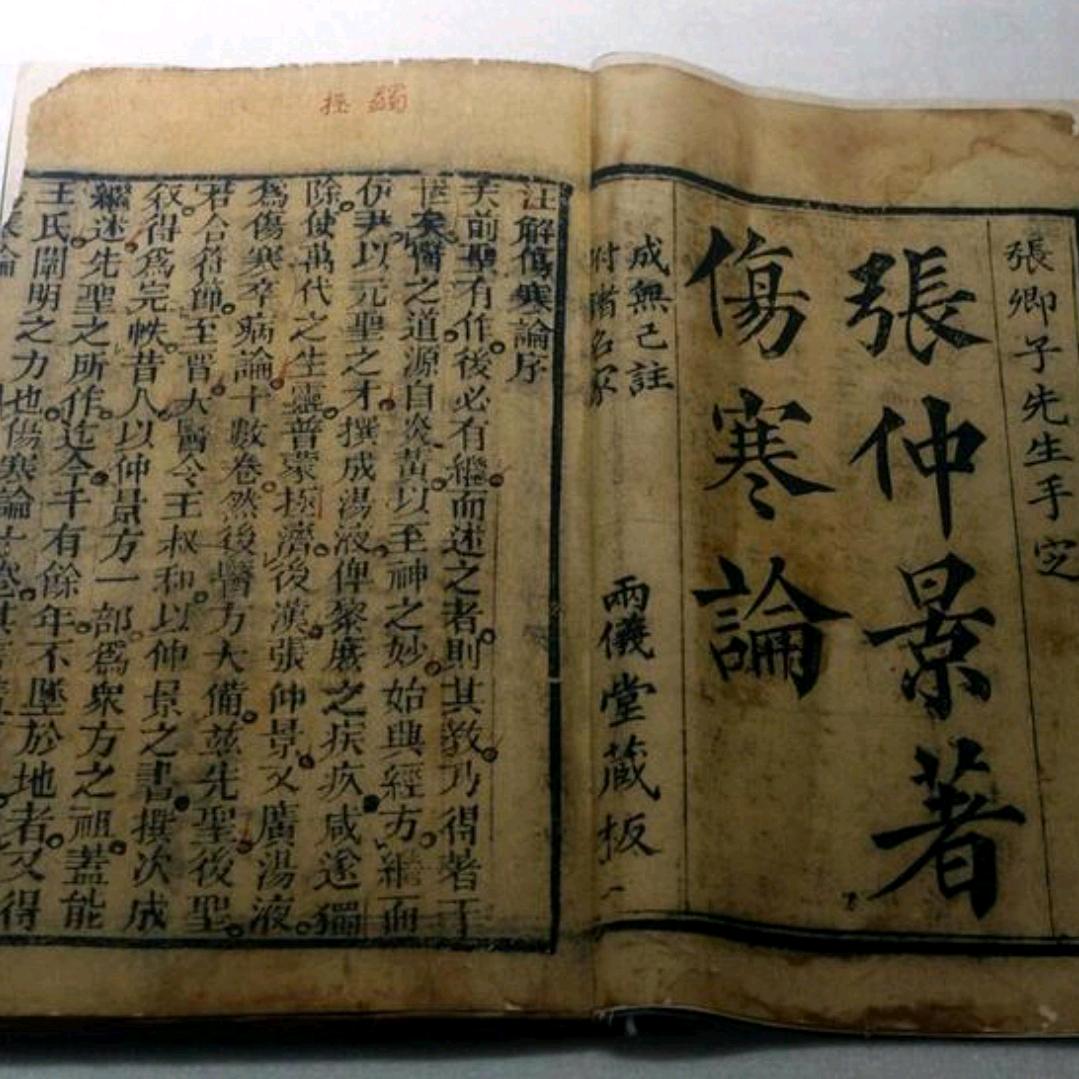 張卿子先生手定
張仲景著
傷寒論
成無己註
附諸名家
兩儀堂藏板
注解傷寒論序
夫前聖有作後必有繼而述之者則其教乃得著于
世矣醫之道源自炎黃以至神之妙始興經方繼而
伊尹以元聖之才撰成湯液俾黎庶之疾疚咸遂蠲
除使萬代之生靈普蒙拯濟後漢張仲景又廣湯液
爲傷寒卒病論十數卷然後醫方大備茲先聖後聖
若合符節至晉大醫令王叔和以仲景之書撰次成
叙得爲完帙昔人以仲景方一部爲衆方之祖蓋能
繼述先聖之所作迄今千有餘年不墜於地者又得
王氏闡明之力也傷寒論十卷其
蠲 拯